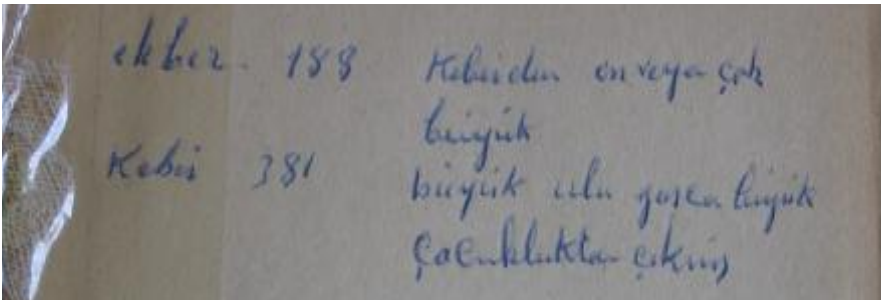 ekber. 188 Kebirden en veya çok
büyük
Kebir 381 büyük ulu yaşca büyük
Çocukluktan çıkmış